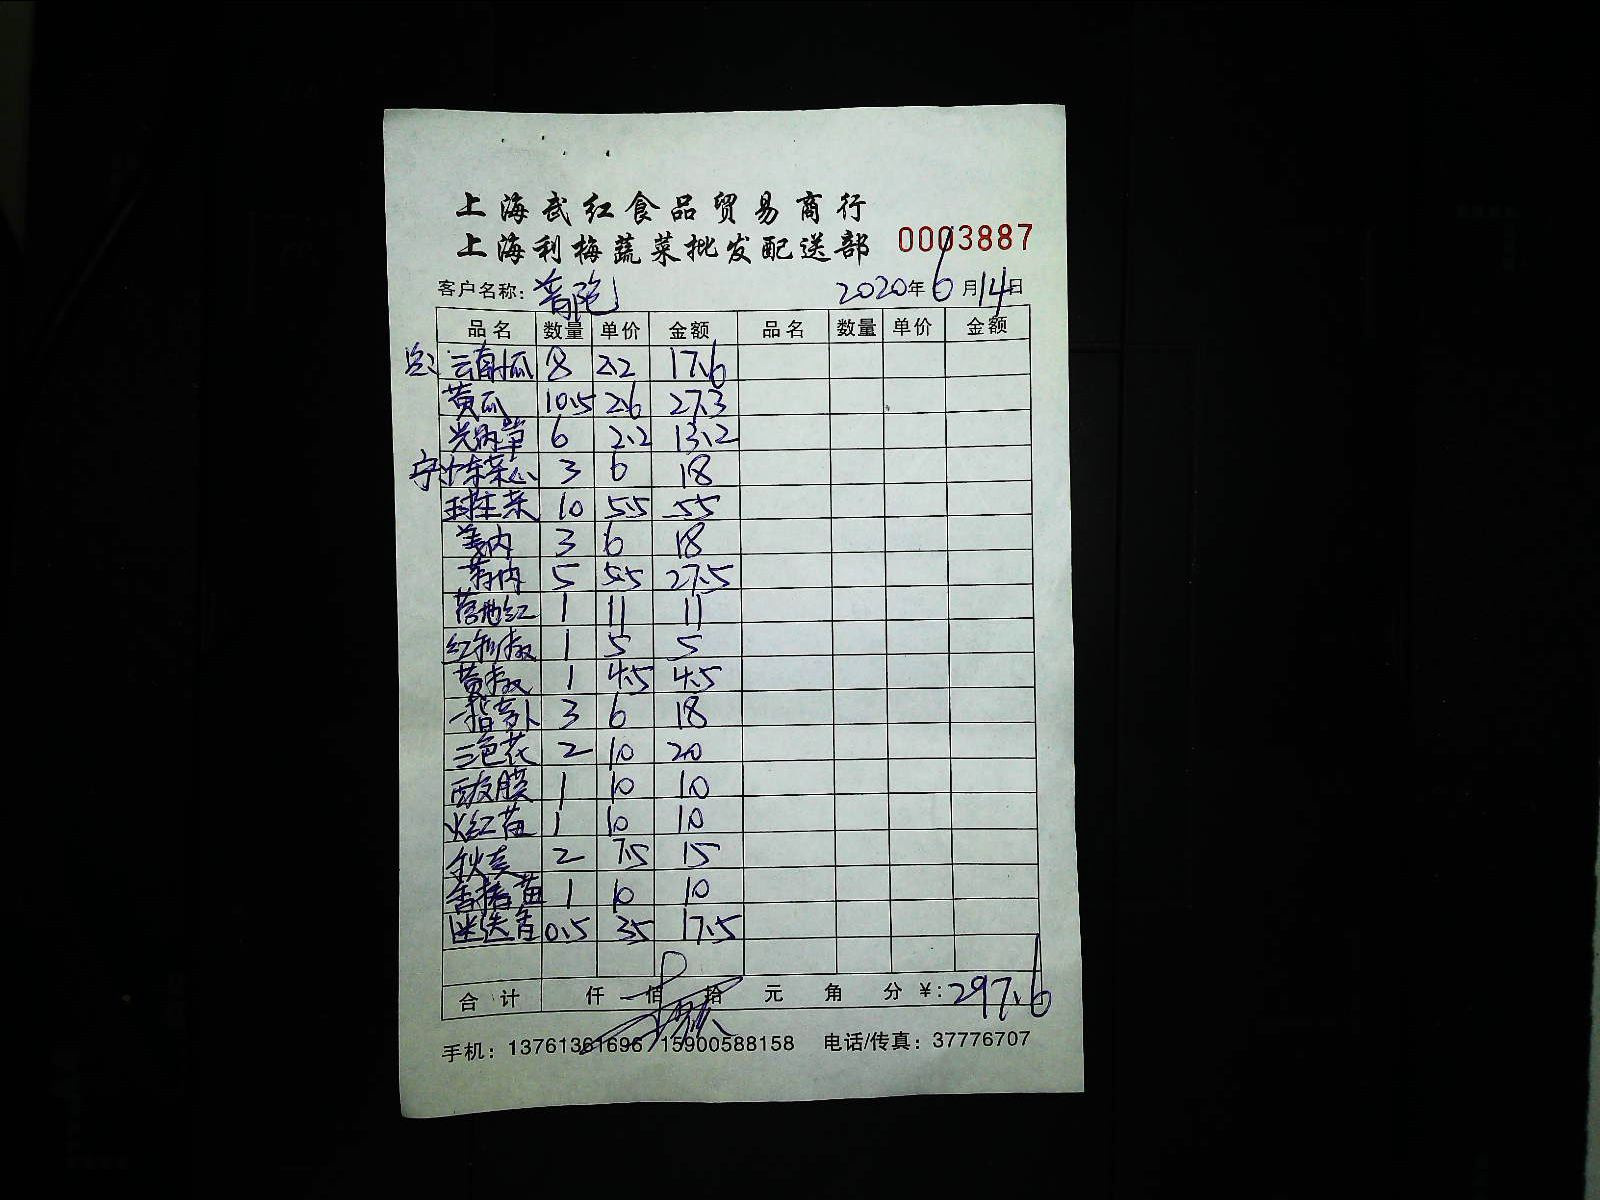 上海武红食品贸易商行
上海利梅蔬菜批发配送部 0003887
客户名称: 普陀 2020年6月14日
品名 数量 单价 金额 品名 数量 单价 金额
云南小瓜 8 2.2 17.6
黄瓜 10.5 2.6 27.3
光莴笋 6 2.2 13.2
宁 广东菜心 3 6 18
球生菜 10 5.5 55
3 6 18
5 5.5 27.5
落地红 1 11 11
红椒 1 5 5
黄椒 1 4.5 4.5
3 6 18
三色花 2 10 20
1 10 10
火红苗 1 10 10
秋葵 2 7.5 15
苗 1 10 10
迷迭香 0.5 35 17.5
合计 仟 佰 拾 元 角 分 ¥: 297.6
手机: 13761361696 15900588158 电话/传真: 37776707